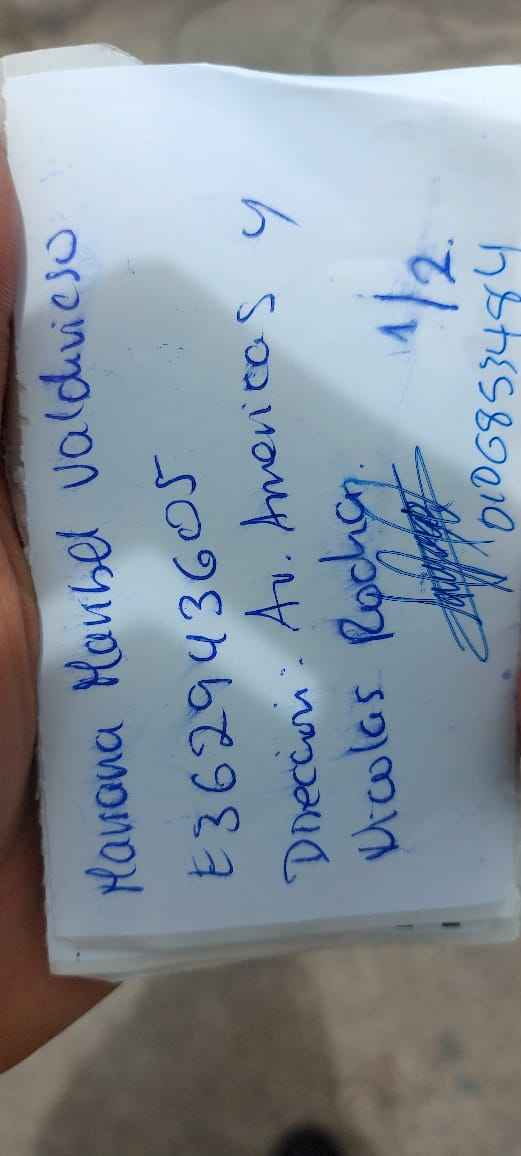 Mariana Maribel Valdivieso
E362943605
Dirección: Av. Americas y
Nicolas Rocha.
1/2.
0106853484